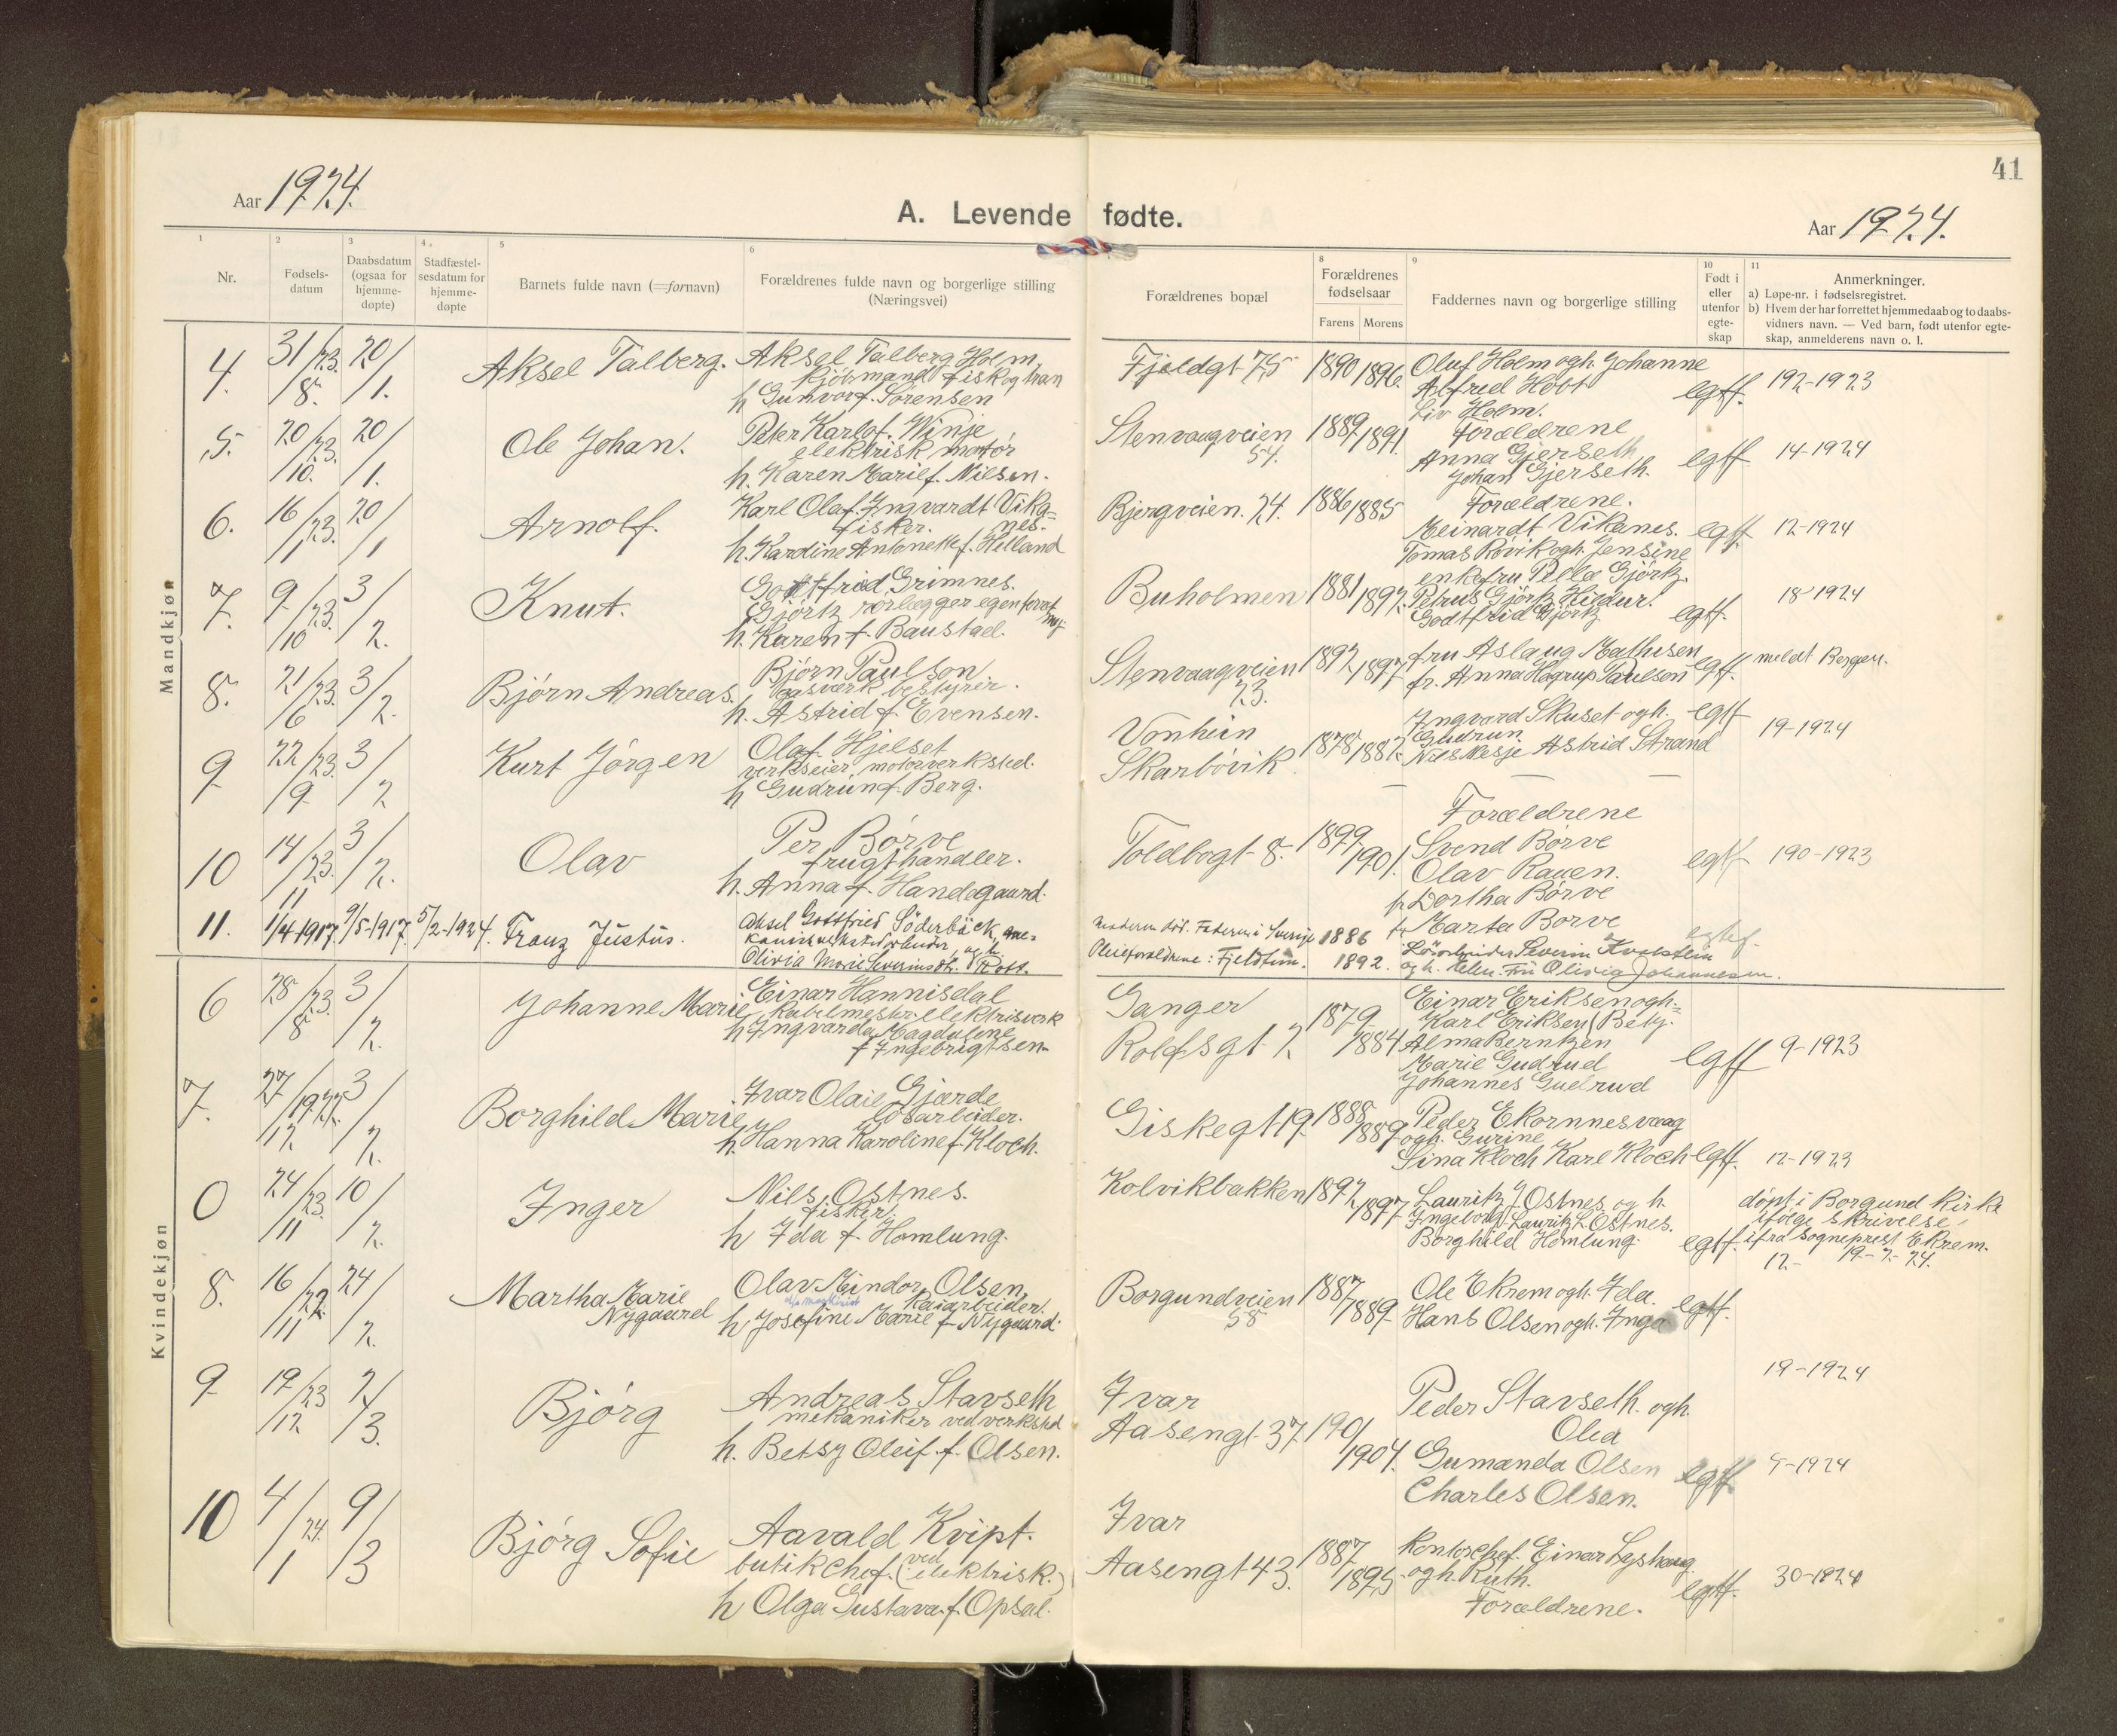 41
Aar 1924.
A. Levende fødte.
Aar 1924.
1
2
3
4
5
6
8
9
10
11
Nr.
Fødsels-
datum
Daabsdatum
(ogsaa for
hjemme-
døpte)
Stadfæstel-
sesdatum for
hjemme-
døpte
Barnets fulde navn (=fornavn)
Forældrenes fulde navn og borgerlige stilling
(Næringsvei)
Forældrenes bopæl
Forældrenes
fødselsaar
Farens Morens
Faddernes navn og borgerlige stilling
Født i
eller
utenfor
egte-
skap
Anmerkninger.
a) Løpe-nr. i fødselsregistret.
b) Hvem der har forrettet hjemmedaab og to daabs-
vidners navn. — Ved barn, født utenfor egte-
skap, anmelderens navn o. l.
Mandkjøn
4. 31/8. 23. 20/1. Aksel Talberg. Aksel Talberg Holm,
kjøbmand fisk og tran
h Gunvor f. Sørensen
Fjeldgt 25 1890 1896. Oluf Holm og h. Johanne
Alfred Holm
Liv Holm.
egtf. 192-1923
5. 20/10. 23. 20/1. Ole Johan. Peter Karl Winje
elektrisk montør
h. Karen Marie f. Nilsen.
Stenvaagveien 54. 1889 1891. Forældrene
Anna Gjerseth
Johan Gjerseth.
egtf 14-1924
6. 16/11 23. 20/1 Arnolf. Karl Olaf Ingvardt Vika=
fisker. nes.
h. Kardine Antonette f. Helland
Bjergveien. 24. 1886 1885 Forældrene.
Meinardt Vikanes.
Tomas Røvik og h. Jensine
egtf 12-1924
7. 9/10 23. 3/2. Knut. Gottfrid Grimnes.
Gjørtz rørlægger egen forret
h. Karen f. Baustad.
Buholmen 1881 1892. enkefru Pella Gjørtz.
Petrus Gjørtz
Godtfrid Gjørtz
egtf. 18-1924
8. 21/6 23. 3/2. Bjørn Andreas. Bjørn Paulson
gasverk bestyrer.
h. Astrid f. Evensen.
Stenvaagveien 23. 1892 1897 fru Aslaug Mathisen
fr. Anna Hagrup Paulson
egtf. meldt Bergen.
9 22/9 23. 3/2 Kurt Jørgen Olaf Hjelset
verkseier, motorverksted.
h Gudrun f. Berg.
Vonheim
Skarbøvik 1878 1887. Ingvard Skuset og h.
Gudrun.
Nils Kesje Astrid Strand
egtf 19-1924
10 14/11 23. 3/2. Olav Per Børve
frugthandler.
h. Anna f. Handegaard.
Toldbogt 8. 1899 1901. Forældrene
Svend Børve
Olav Rauen.
fr. Dortha Børve
fr. Marta Børve
egtf 190-1923
11. 1/4-1917. 9/5-1917. 5/2-1924. Franz Justus. Aksel Gottfried Söderbäck,
Olivia Marie Severinsdtr.
Moderen død. Faderen i Sverige
Pleieforældrene: Fjeldtun. 1886
1892. Løsarbeider Severin
og h. Elen. Fru Olivia Johannessen.
Kvindekjøn
6 28/8 23. 3/2. Johanne Marie Einar Hannisdal
Kabelmester elektrisverk
h Ingvarda Magdalene
f Ingebrigtsen
Ganger
Rolfsgt 2 1879 1884 Einar Eriksen og h=
Karl Eriksen Bety.
Alma Berntzen
Marie Gudrud
Johannes Gudrud
egtf 9-1923
7. 27/12. 1923. 3/2. Borghild Marie Ivar Olai Gjærde
løsarbeider.
h. Hanna Karoline f Kloch.
Giskegt 19. 1888 1889 Peder Ekornnesvaag
og h. Gurine
Sina Kloch Karl Kloch
egtf. 12-1923
0 24/11 23. 10/2. Inger Nils Ostnes.
fisker.
h Ida f. Homlung.
Kolvikbakken 1892 1897 Lauritz J. Ostnes og h.
Ingeborg. Lauritz L. Ostnes.
Borghild Homlung.
egtf. døpt i Borgund kirke
ifølge skrivelse
ifra sogneprest Ekrem.
12.- 19-2-24.
8. 16/11 22. 24/2. Martha Marie
Nygaard
Olav Meindor Olsen
Kaiarbeider.
h Josefine Marie f Nygaard.
Borgundveien 58 1887 1889 Ole Ekrem og h. Ida.
Hans Olsen og h. Inga
egtf.
9 19/12. 23 2/3. Bjørg Andreas Stavseth
mekaniker ved verksted
h. Betsy Oleif f. Olsen.
Ivar
Aasengt 37. 1901 1904. Peder Stavseth og h.
Olea
Gumanda Olsen
Charles Olsen.
egtf 19-1924
5-1924
10 4/1 24. 9/3 Bjørg Sofie Aavald Kvipt.
butikchef. (ved elektrisk.)
h Olga Gustava f. Opsal.
Ivar
Aasengt 43. 1887 1895. Kontorchef. Einar Lyshaug
og h. Ruth.
Forældrene.
egtf. 30-1924